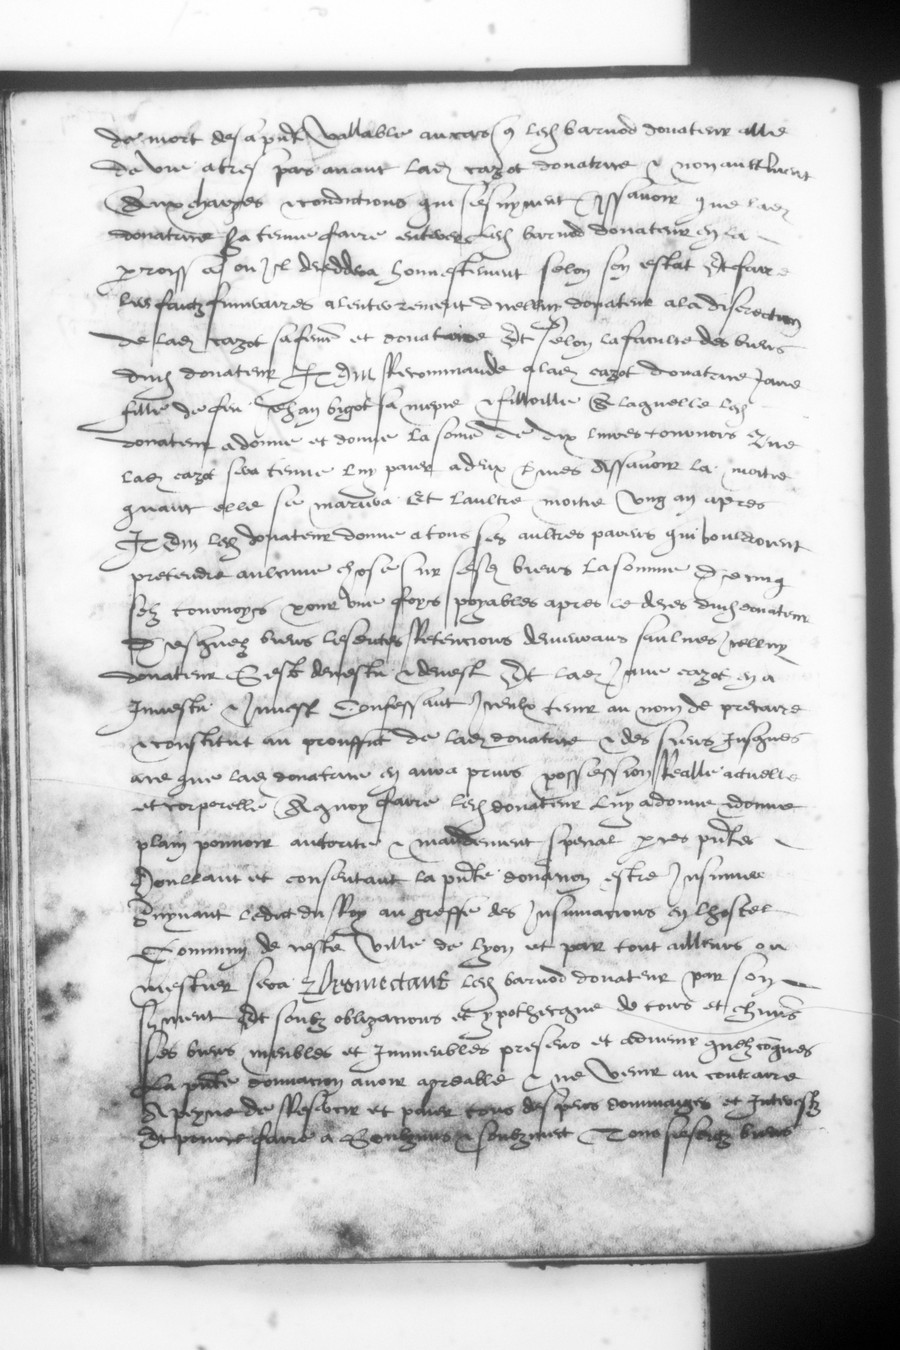 de mort des a pnt vallable au cas q led barnod donateur aille
de vie a tres pas avant lad cazot donatrice & non aultrement
Aux charges & conditions qui sensuyvent Assavoir que lad
donatrice sa tenue faire enterrer led barnod donateur en la
parroisse ou il deceddera honnestement selon son estat Et faire
les fraictz funeraires a lenterrement dicelluy donateur a la discretion
de lad cazot sa feme et donatrice Et selon la faculte des biens
dud donateur Item Recommande a lad cazot donatrice Jane
fille de feu Jehan bigot sa niepce & filleulle A laquelle led
donateur a donne et donne la some de dix livres tournois Que
lad cazot sera tenue luy paier a deux termes Assavoir la moitie
quant elle se mariera Et laultre moitie ung an apres
Item led donateur donne a tous ses aultres parens qui vouldroient
pretendre aulcune chose sur sesd biens la somme de cinq
solz tournoys pour une foys payables apres le deces dud donateur
Desquelz biens lesd Retencions demeurans saulves icelluy
donateur Sest devestu & devest Et lad Jane cazot en a
Investu & Invest Confessant iceulx tenir au nom de precaire
& constitut au prouffict de lad donatrice & des siens Jusques
ace que lad donatrice en aura prins possession Realle actuelle
et corporelle A quoy faire led donateur luy a donne & donne
plain pouvoir auctorite & mandement special par ces pntes
Voullant et consentant la pnte donation estre Insinuee
Suyvant ledict du Roy au greffe des Insinuacions en lhostel
Commun de ceste Ville de Lyon et par tout ailleurs ou
mestier sera Promectant led barnod donateur par son
serment Et soubz obligacions et ypothecque de tous et chuns
ses biens meubles et Immeubles presens et advenir quelzcoques
La pnte donnacion avoir agreable & ne venir au contraire
A peyne de Rescovir et paier tous despens dommaiges et Interestz
Et pour ce faire a Soubzmis & soubzmet Tous sesd biens